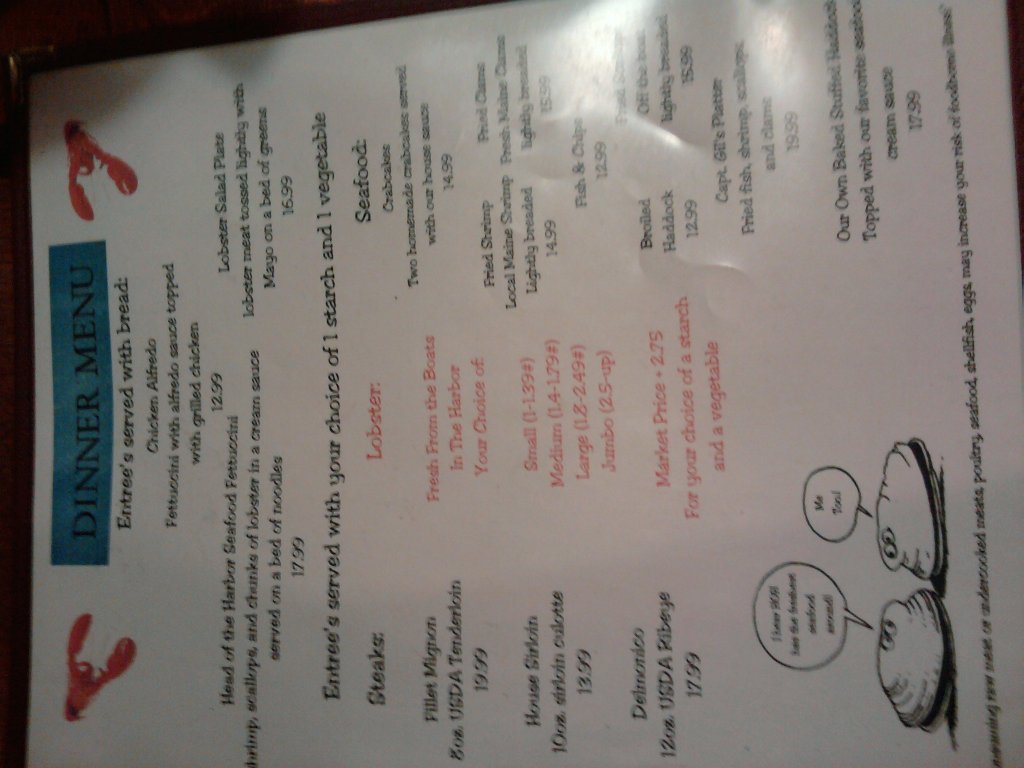 DINNER MENU
Entree's served with bread:
Chicken Alfredo
Fettuccini with alfredo sauce topped
with grilled chicken
12.99
Head of the Harbor Seafood Fettuccini
shrimp, scallops, and chunks of lobster in a cream sauce
served on a bed of noodles
17.99
Lobster Salad Plate
lobster meat tossed lightly with
Mayo on a bed of greens
16.99
Entree's served with your choice of 1 starch and 1 vegetable
Steaks:
Fillet Mignon
8oz. USDA Tenderloin
19.99
House Sirloin
10oz. sirloin culotte
13.99
Delmonico
12oz. USDA Ribeye
17.99
Lobster:
Fresh From the Boats
In The Harbor
Your Choice of:
Small (1-1.39#)
Medium (1.4-1.79#)
Large (1.8-2.49#)
Jumbo (2.5-up)
Market Price + 2.75
For your choice of a starch
and a vegetable
Seafood:
Crabcakes
Two homemade crabcakes served
with our house sauce
14.99
Fried Shrimp
Local Maine Shrimp
Lightly breaded
14.99
Fried Clams
Fresh Maine Clams
lightly breaded
15.99
Fish & Chips
12.99
Broiled
Haddock
12.99
Fried
Off the boat
lightly breaded
15.99
Capt. Gil's Platter
Fried fish, shrimp, scallops
and clams
19.99
Our Own Baked Stuffed Haddock
Topped with our favorite seafood
cream sauce
17.99
I hear HOH
has the freshest
seafood
around!
Me
Too!
raw meat or undercooked meats, poultry, seafood, shellfish, eggs, may increase your risk of foodborne illness"